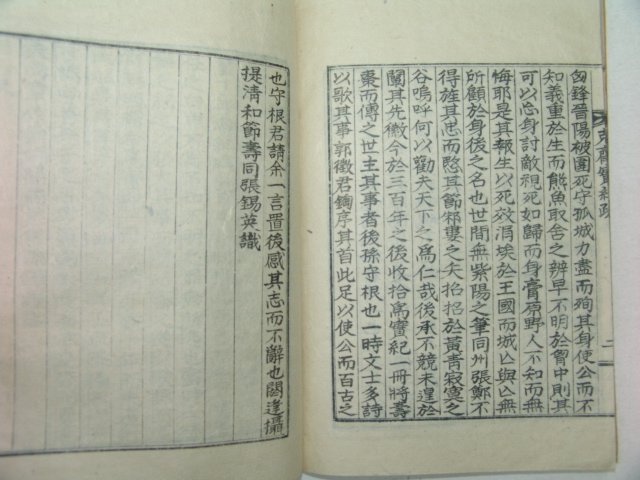 匈鋒晉陽被圍死守孤城力盡而殉其身使公而不
知義重於生而熊魚取舍之辨早不明於胷中則其
可以忘身討敵視死如歸而身膏原野人不知而無
悔耶是其報生以死效涓埃於王國而城亾與亾無
所顧於身後之名也世間無紫陽之筆同州張鄭不
得旌其志而愍其節邾婁之矢招招於黃青寂寞之
谷嗚呼何以勸夫天下之爲仁哉後承不競未遑於
闡其先徽今於三百年之後收拾爲實紀一冊將壽
棗而傳之世主其事者後孫守根也一時文士多詩
以歌其事郭徵君鋾序其首此足以使公而百古之
也守根君請余一言置後感其志而不辭也閼逢攝
提淸和節壽同張錫英識
齋實紀跋
二